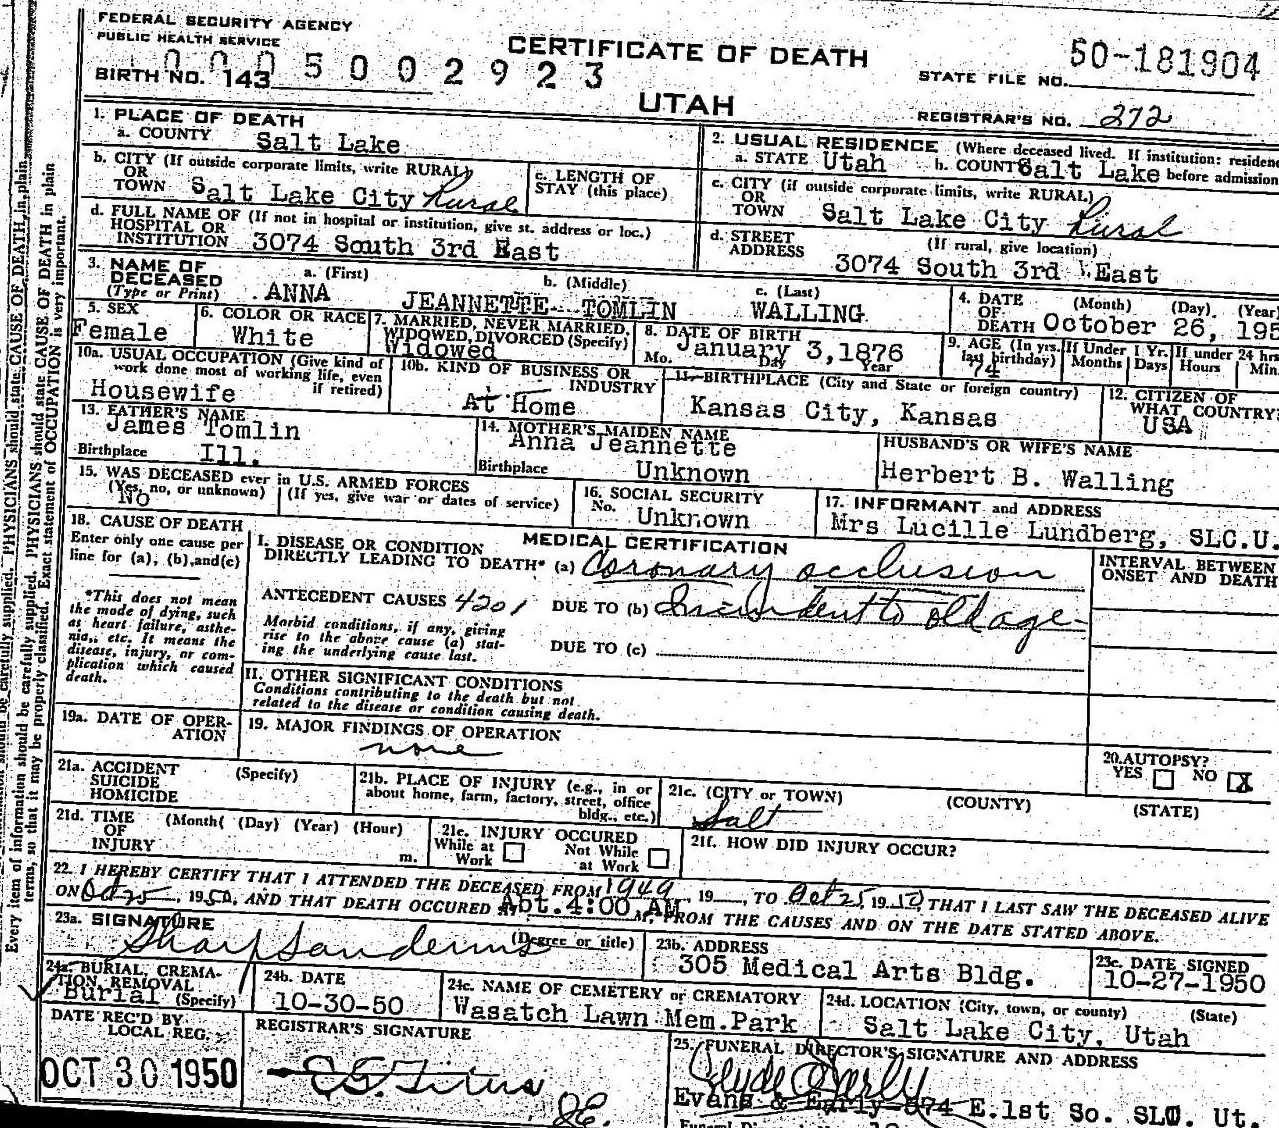 FEDERAL SECURITY AGENCY
PUBLIC HEALTH SERVICE
CERTIFICATE OF DEATH
50-181904
STATE FILE NO.
5002923
BIRTH NO. 143
UTAH
REGISTRAR'S NO. 272
1. PLACE OF DEATH
a. COUNTY Salt Lake
2. USUAL RESIDENCE (Where deceased lived. If institution: residence
a. STATE Utah b. COUNTY Salt Lake before admission
b. CITY (If outside corporate limits, write RURAL)
OR
TOWN Salt Lake City Rural
c. LENGTH OF
STAY (this place)
c. CITY (if outside corporate limits, write RURAL)
OR
TOWN Salt Lake City Rural
d. FULL NAME OF (If not in hospital or institution, give st. address or loc.)
HOSPITAL OR
INSTITUTION 3074 South 3rd East
d. STREET (If rural, give location)
ADDRESS 3074 South 3rd East
3. NAME OF
DECEASED
(Type or Print)
a. (First) b. (Middle) c. (Last)
ANNA JEANNETTE TOMLIN WALLING
4. DATE (Month) (Day) (Year)
OF
DEATH October 26, 195
5. SEX
Female
6. COLOR OR RACE
White
7. MARRIED, NEVER MARRIED,
WIDOWED, DIVORCED (Specify)
Widowed
8. DATE OF BIRTH
January 3, 1876
Mo. Day Year
9. AGE (In yrs. last birthday)
74
If Under 1 Yr.
Months Days
If under 24 hrs
Hours Min.
10a. USUAL OCCUPATION (Give kind of
work done most of working life, even
if retired)
Housewife
10b. KIND OF BUSINESS OR
INDUSTRY
At Home
11. BIRTHPLACE (City and State or foreign country)
Kansas City, Kansas
12. CITIZEN OF
WHAT COUNTRY?
USA
13. FATHER'S NAME
James Tomlin
Birthplace Ill.
14. MOTHER'S MAIDEN NAME
Anna Jeannette
Birthplace Unknown
HUSBAND'S OR WIFE'S NAME
Herbert B. Walling
15. WAS DECEASED ever in U.S. ARMED FORCES
(Yes, no, or unknown) (If yes, give war or dates of service)
NO
16. SOCIAL SECURITY
No. Unknown
17. INFORMANT and ADDRESS
Mrs Lucille Lundberg, SLC.U.
18. CAUSE OF DEATH
Enter only one cause per
line for (a), (b), and (c)
*This does not mean
the mode of dying, such
as heart failure, asthe-
nia, etc. It means the
disease, injury, or com-
plication which caused
death.
MEDICAL CERTIFICATION
I. DISEASE OR CONDITION
DIRECTLY LEADING TO DEATH* (a) Coronary occlusion
INTERVAL BETWEEN
ONSET AND DEATH
ANTECEDENT CAUSES 4201 DUE TO (b) Incident to old age
Morbid conditions, if any, giving
rise to the above cause (a) stat-
ing the underlying cause last.
DUE TO (c)
II. OTHER SIGNIFICANT CONDITIONS
Conditions contributing to the death but not
related to the disease or condition causing death.
19a. DATE OF OPER-
ATION
19. MAJOR FINDINGS OF OPERATION
none
20. AUTOPSY?
YES NO X
21a. ACCIDENT (Specify)
SUICIDE
HOMICIDE
21b. PLACE OF INJURY (e.g., in or
about home, farm, factory, street, office
bldg., etc.)
21c. (CITY or TOWN) (COUNTY) (STATE)
Salt
21d. TIME (Month) (Day) (Year) (Hour)
OF
INJURY m.
21e. INJURY OCCURED
While at Work Not While at Work
21f. HOW DID INJURY OCCUR?
22. I HEREBY CERTIFY THAT I ATTENDED THE DECEASED FROM 1949, 19__, TO Oct 25 1950, THAT I LAST SAW THE DECEASED ALIVE
ON Oct 25, 1950, AND THAT DEATH OCCURED AT Abt. 4:00 AM M., FROM THE CAUSES AND ON THE DATE STATED ABOVE.
23a. SIGNATURE (Degree or title)
Sharp Sanders
23b. ADDRESS
305 Medical Arts Bldg.
23c. DATE SIGNED
10-27-1950
24a. BURIAL, CREMA-
TION, REMOVAL
Burial (Specify)
24b. DATE
10-30-50
24c. NAME OF CEMETERY or CREMATORY
Wasatch Lawn Mem. Park
24d. LOCATION (City, town, or county) (State)
Salt Lake City, Utah
DATE REC'D BY
LOCAL REG.
OCT 30 1950
REGISTRAR'S SIGNATURE
25. FUNERAL DIRECTOR'S SIGNATURE AND ADDRESS
Clyde Early
Evans & Early 574 E.1st So. SLC. Ut.
Every item of information should be carefully supplied. PHYSICIANS should state CAUSE OF DEATH in plain
terms, so that it may be properly classified. Exact statement of OCCUPATION is very important.